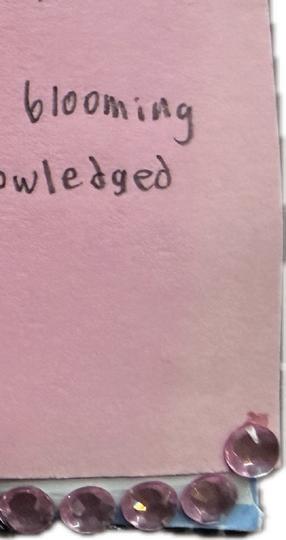 blooming
owledged